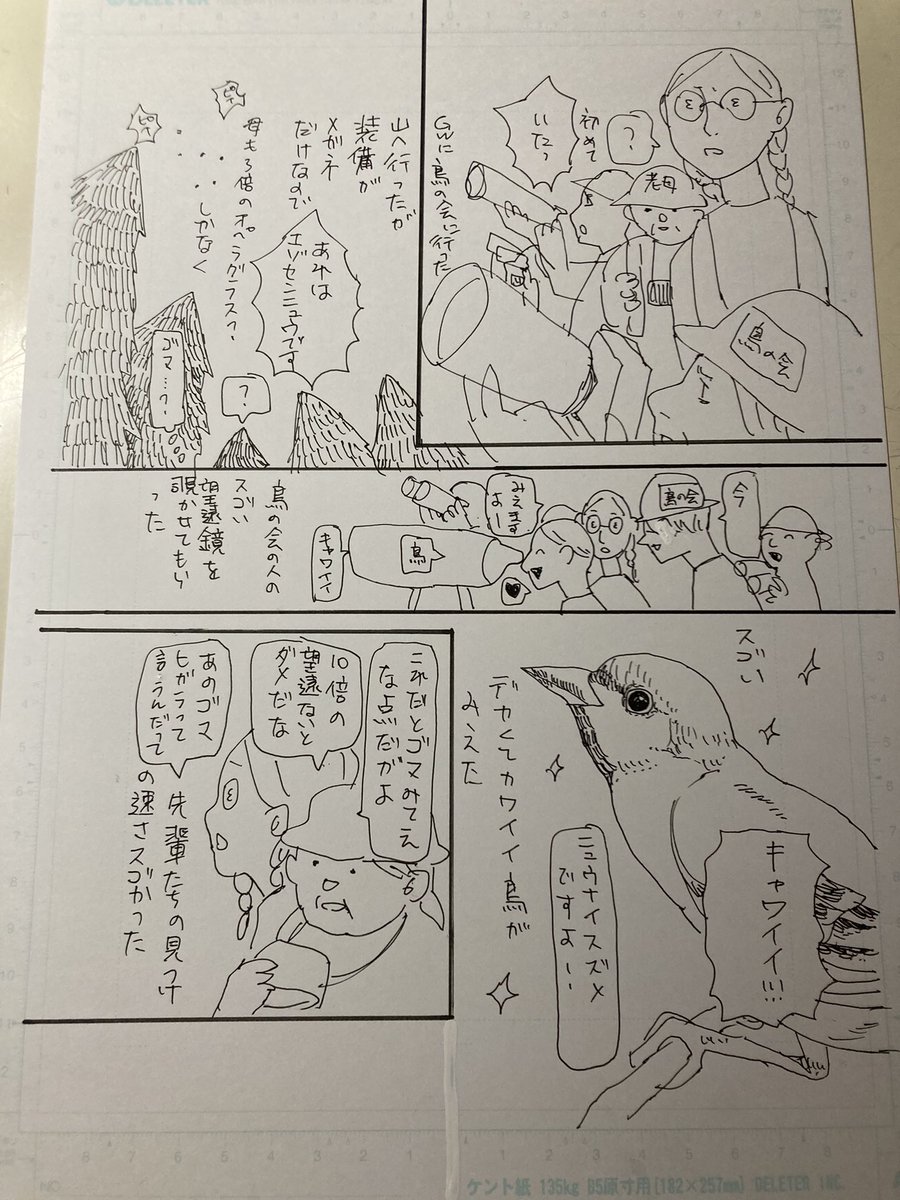 GWに鳥の会に行った
初めて
？
いたっ
老母
鳥の会
山へ行ったが
装備が
メガネ
だけなので
あれは
エゾセンニュウです
母も3倍のオペラグラスっ
しかなく
ピィ
ピィ
？
ゴマ…？
今
鳥の会
みえます
よー
鳥
キャワイイ
鳥の会の人の
スゴい
望遠鏡を
覗かせてもら
った
スゴい
デカくてカワイイ鳥が
みえた
キャワイイ!!!
ニュウナイスズメ
ですよー
これだとゴマみてえ
な点だがよ
10倍の
望遠ないと
ダメだな
あのゴマ
ヒガラって
言うんだって
先輩たちの見つけ
の速さスゴかった
ケント紙 135kg B5原寸用(182×257mm) DELETER INC.